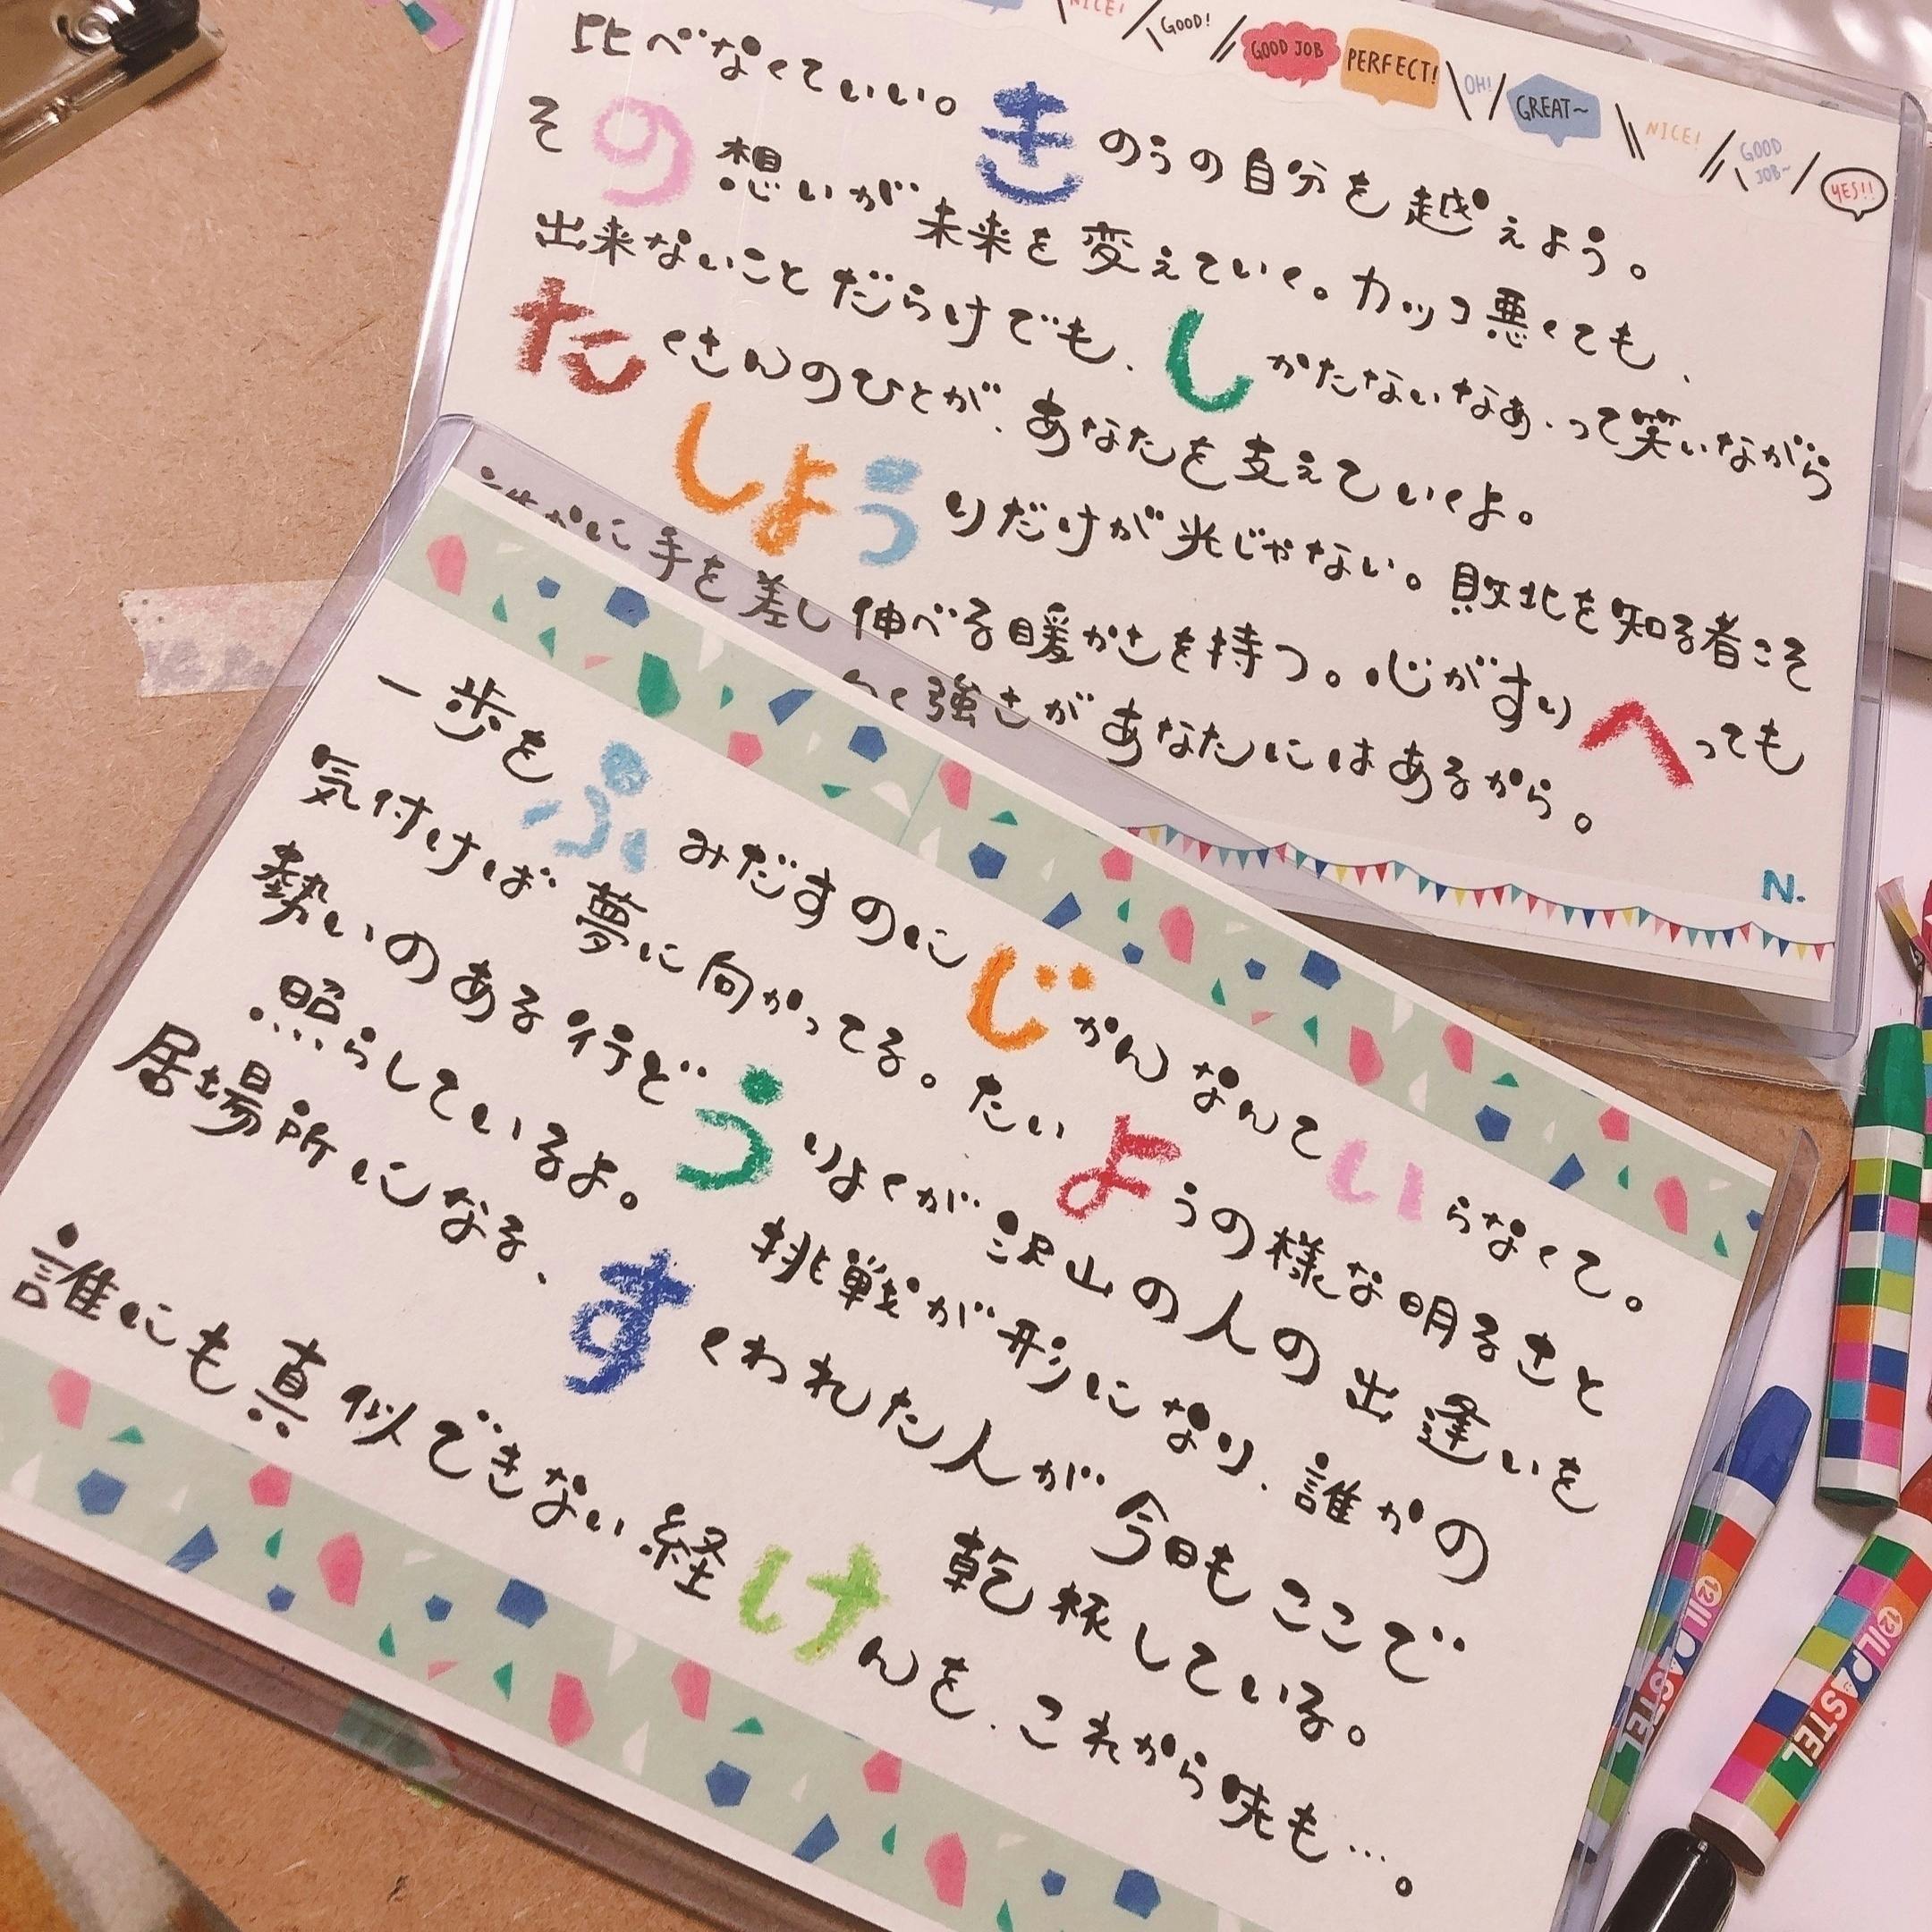 NICE!
GOOD!
GOOD JOB
PERFECT!
OH!
GREAT~
NICE!
GOOD JOB~
YES!!
比べなくていい。きのうの自分を越えよう。
その想いが未来を変えていく。カッコ悪くても、
出来ないことだらけでも、しかたないなあ、って笑いながら
たくさんのひとが、あなたを支えていくよ。
しょうりだけが光じゃない。敗北を知る者こそ
誰かに手を差し伸べる暖かさを持つ。心がすりへっても
く強さがあなたにはあるから。
N.
一歩をふみだすのにじかんなんていらなくて。
気付けば夢に向かってる。たいようの様な明るさと
熱いのある行どうりょくが沢山の人の出逢いを
照らしているよ。挑戦が形になり、誰かの
居場所になる、すくわれた人が今日もここで
乾杯している。
誰にも真似できない経けんを、これから味も…。
12
PASTEL
12
PASTEL